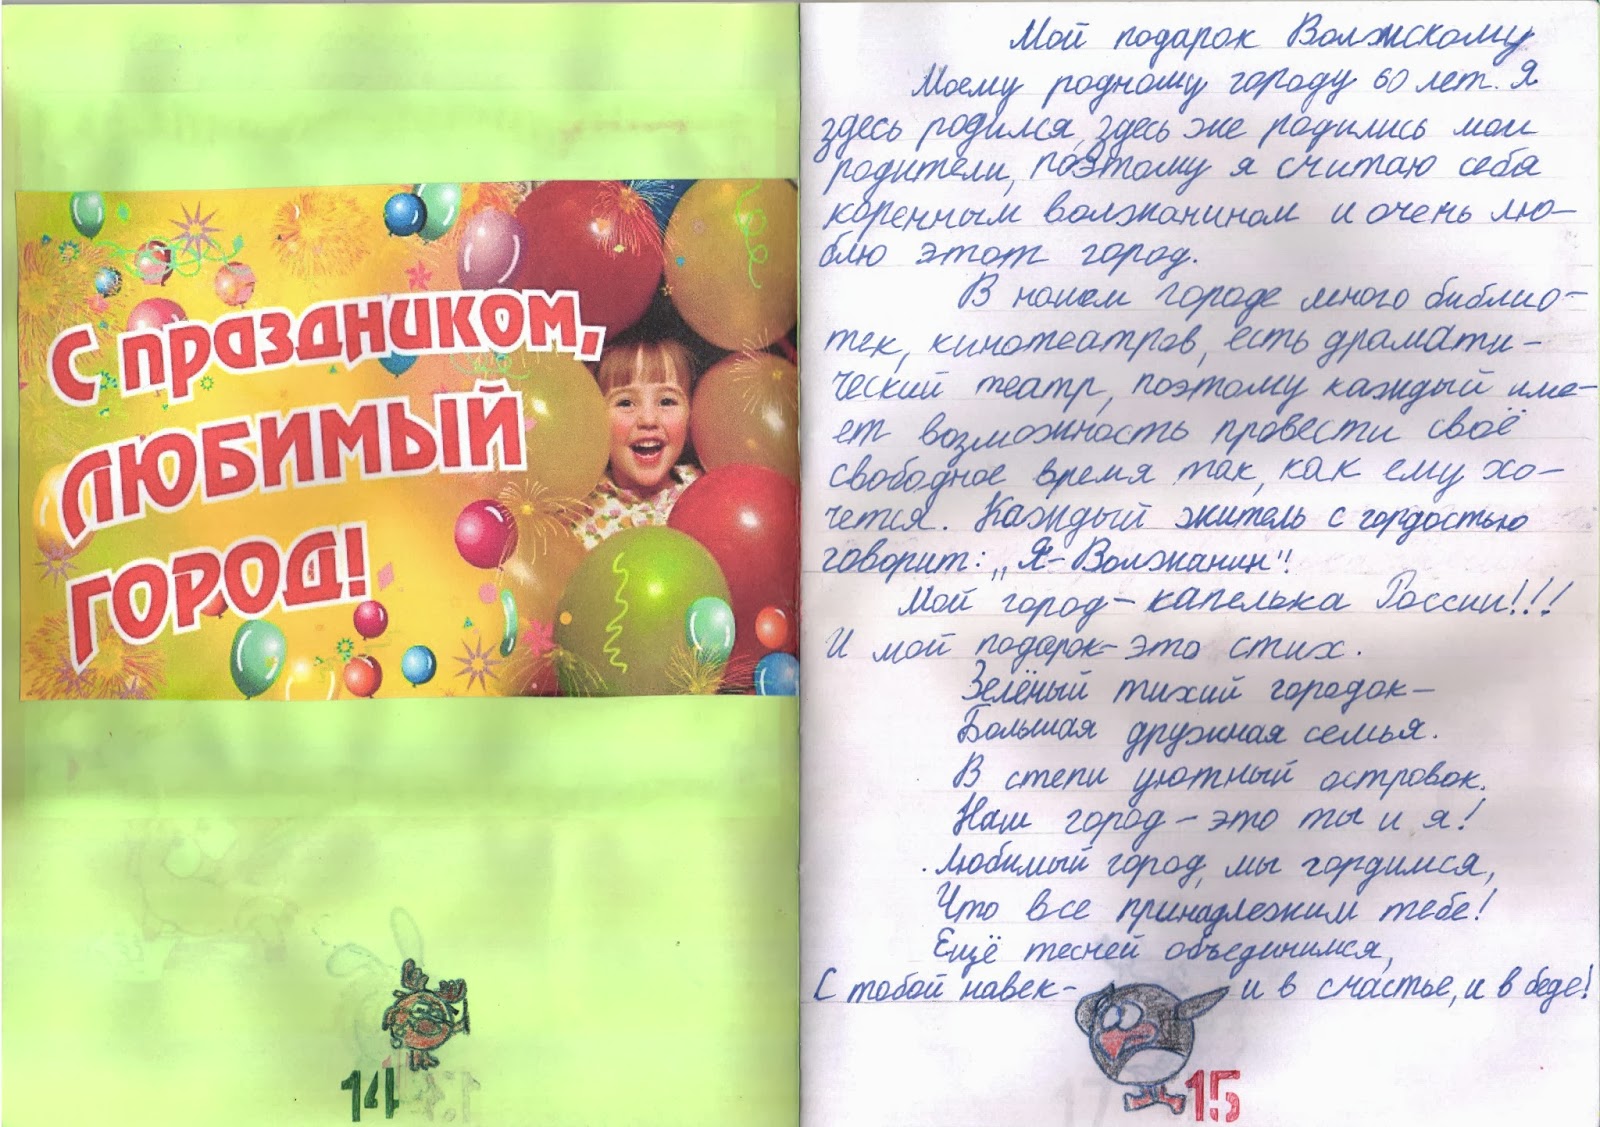 С ПРАЗДНИКОМ,
ЛЮБИМЫЙ
ГОРОД!
14
Мой подарок Волжскому
Моему родному городу 60 лет. Я
здесь родился, здесь же родились мои
родители, поэтому я считаю себя
коренным волжанином и очень лю-
блю этот город.
В нашем городе много библио-
тек, кинотеатров, есть драмати-
ческий театр, поэтому каждый име-
ет возможность провести своё
свободное время так, как ему хо-
чется. Каждый житель с гордостью
говорит: „Я-Волжанин"!
Мой город-капелька России!!!
И мой подарок-это стих.
Зелёный тихий городок-
Большая дружная семья.
В степи уютный островок.
Наш город-это ты и я!
Любимый город, мы гордимся,
Что все принадлежим тебе!
Ещё тесней объединимся,
С тобой навек- и в счастье, и в беде!
15